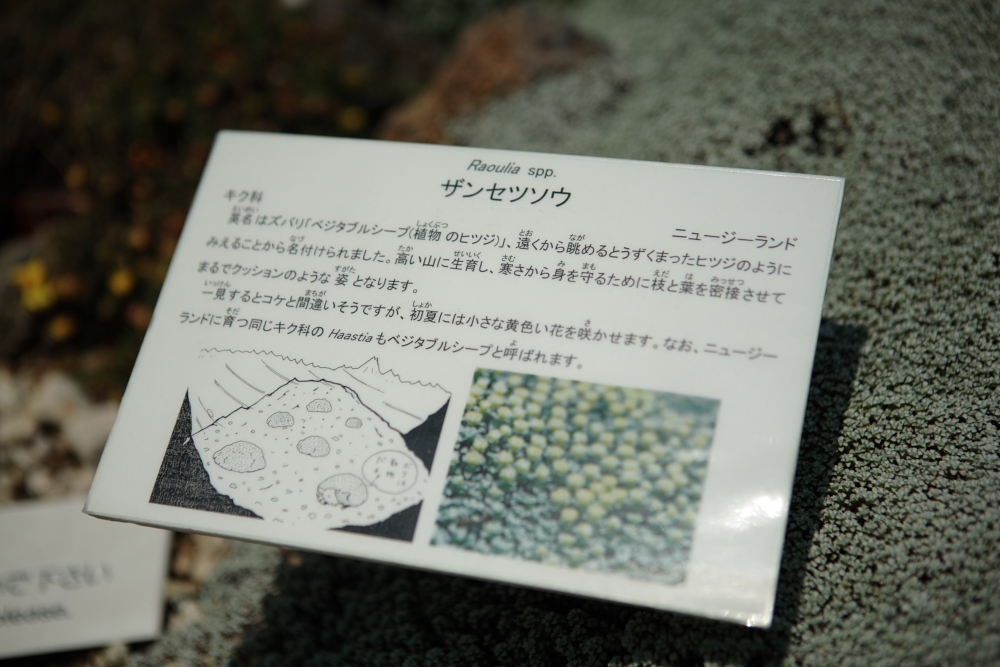 Raoulia spp.
ザンセツソウ
キク科
ニュージーランド
英名はズバリ「ベジタブルシープ(植物のヒツジ)」、遠くから眺めるとうずくまったヒツジのように
みえることから名付けられました。高い山に生育し、寒さから身を守るために枝と葉を密接させて
まるでクッションのような姿となります。
一見するとコケと間違いそうですが、初夏には小さな黄色い花を咲かせます。なお、ニュージー
ランドに育つ同じキク科の Haastia もベジタブルシープと呼ばれます。
ボクは
動物
だよ
下さい